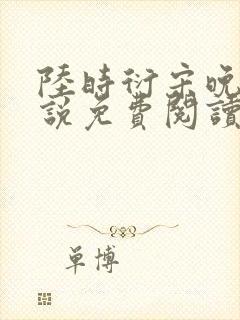 陸時衍宋晚
說免費閱讀
單博